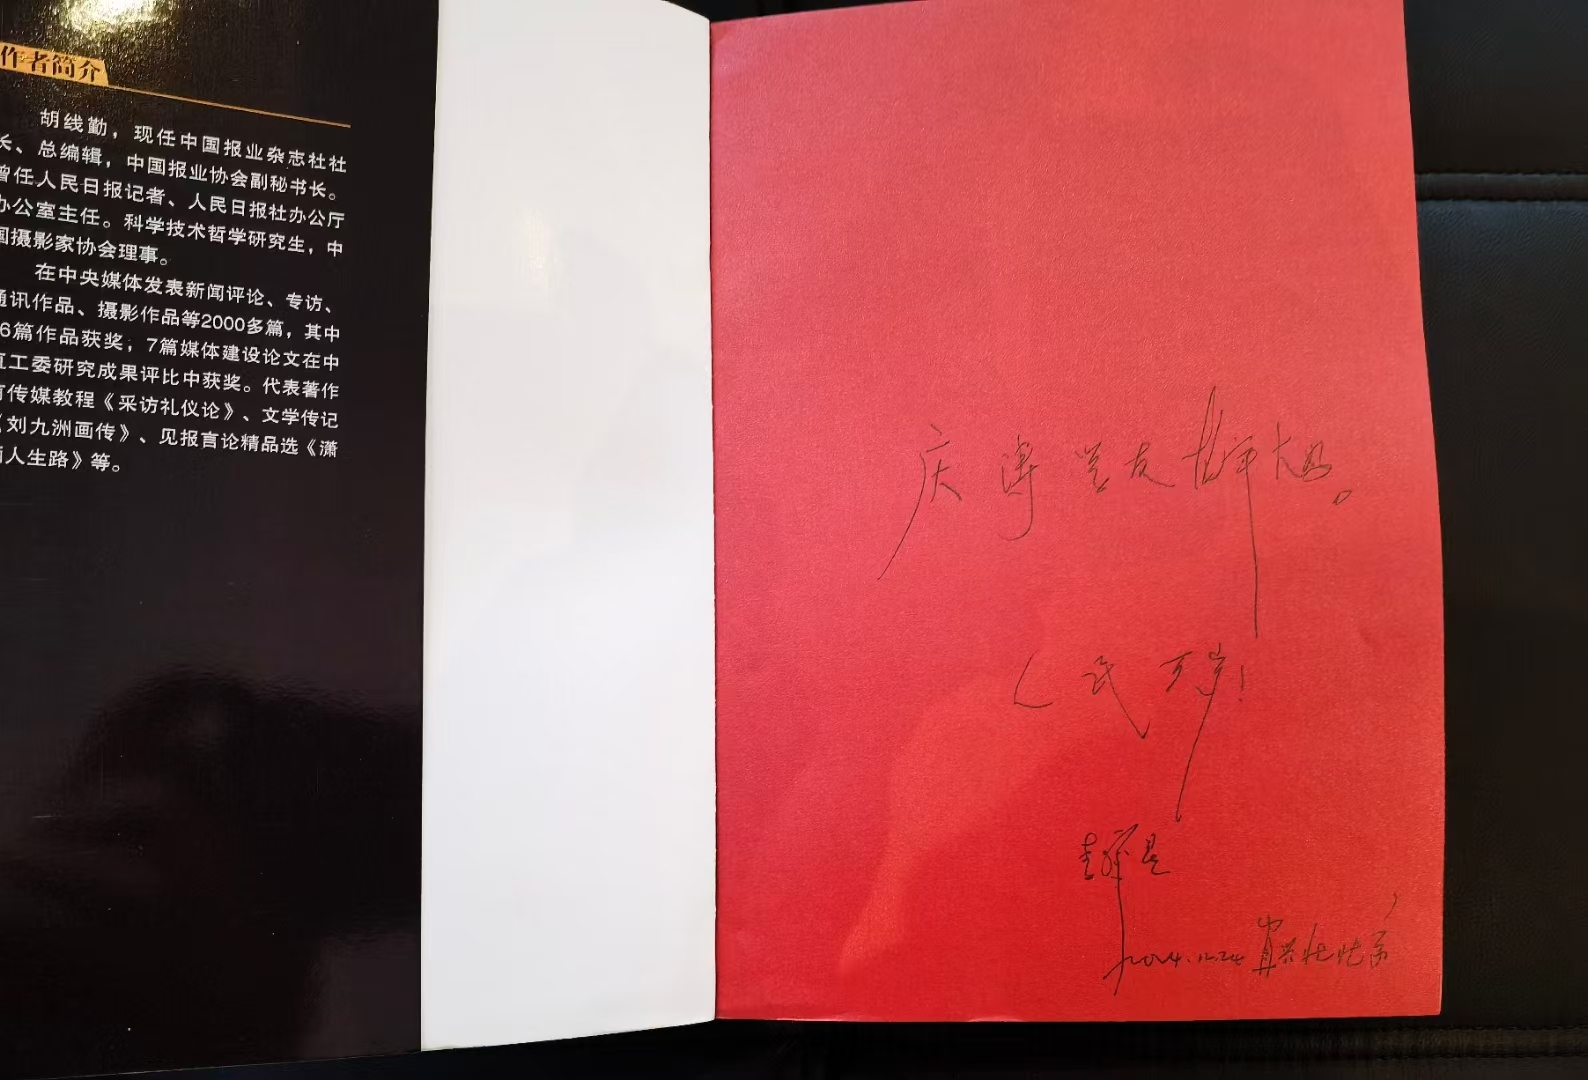 作者简介
胡线勤，现任中国报业杂志社社
长、总编辑，中国报业协会副秘书长。
曾任人民日报记者、人民日报社办公厅
办公室主任。科学技术哲学研究生，中
国摄影家协会理事。
在中央媒体发表新闻评论、专访、
通讯作品、摄影作品等2000多篇，其中
6篇作品获奖，7篇媒体建设论文在中
直工委研究成果评比中获奖。代表著作
有传媒教程《采访礼仪论》、文学传记
《刘九洲画传》、见报言论精品选《潇
洒人生路》等。
庆 学友
人民万岁！
2014.12.24